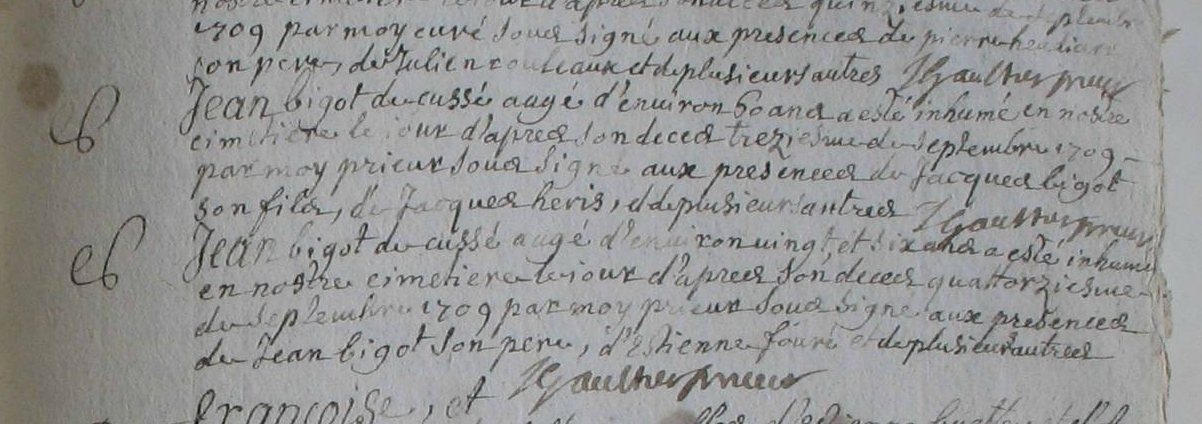 nostre cimetiere le jour d'apres son deces quinziesme de septembre
1709 par moy curé sous signé aux presences de pierre
son pere, de Julien rouleaux et de plusieurs autres JGaultier prieur
6 Jean bigot de cussé augé d'environ 60 ans a esté inhumé en nostre
cimetière le jour d'apres son deces treziesme de septembre 1709
par moy prieur sous signé aux presences de Jacques bigot
son fils, de Jacques heris, et de plusieurs autres JGaultier prieur
e6 Jean bigot de cussé augé d'environ vingt et six ans a esté inhumé
en nostre cimetiere le jour d'apres son deces quattorziesme
de septembre 1709 par moy prieur sous signé aux presences
de Jean bigot son pere, d'estienne fouré et de plusieurs autres
JGaultier prieur
françoise, et